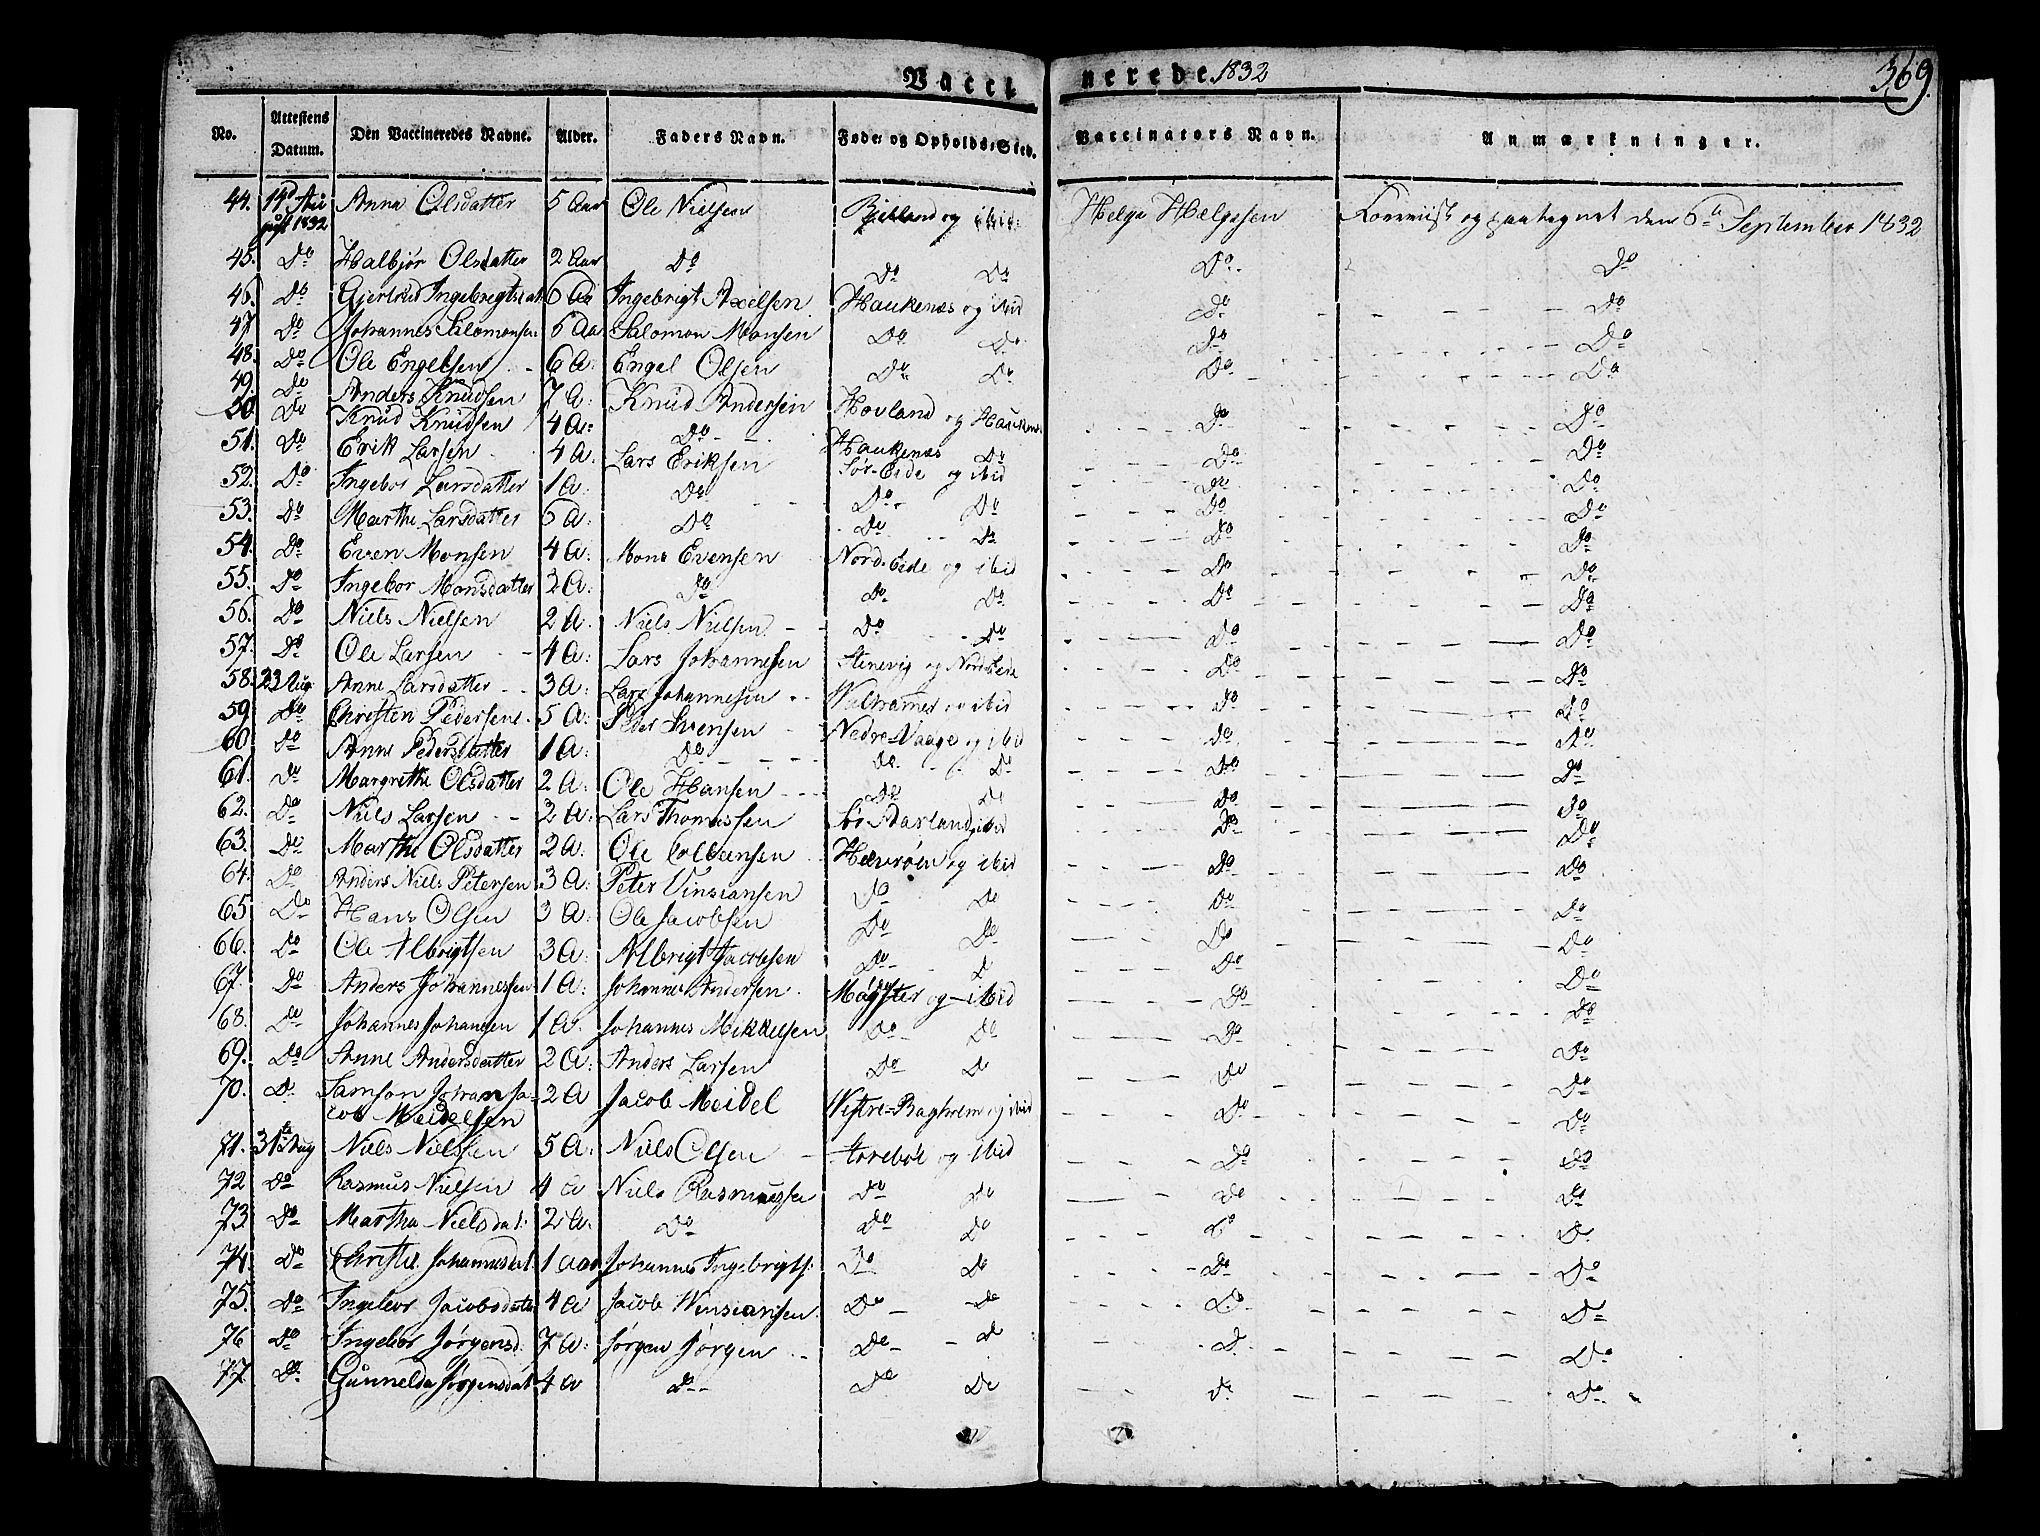 Vacci nerede 1832 369.
No. Attestens Datum. Den Vaccineredes Navne. Alder. Faders Navn. Føde- og Opholds-Sted. Vaccinators Navn. Anmærkninger.
44. 14d Au- gust 1832 Anna Olsdatter 5 Aar Ole Nielsen og ibid: Helge Helgesen og paategnet den 6te September 1832
45. Do Halbjør Olsdatter 2 Aar Do Do Do Do Do
46. Do Gjertrud Ingebregtsdat 6 Aa Ingebrigt Axelsen Haukenæs og ibid Do Do
47 Do Johannes Salomonsen 5 Aa Salomon Monsen Do Do Do Do
48. Do Ole Engelsen 6 A: Engel Olsen Do Do Do Do
49. Do Anders Knudsen 7 A: Knud Andersen Hovland og Haukenæs Do Do
50 Do Knud Knudsen 4 A: Do Haukenæs Do Do Do
51. Do Erik Larsen 4 A: Lars Eriksen Sør-Eide og ibid Do Do
52. Do Ingebor Larsdatter 1 A: Do Do Do Do Do
53. Do Marthe Larsdatter 6 A: Do Do Do Do Do
54. Do Even Monsen 4 A: Mons Evensen Nord-Eide og ibid Do Do
55. Do Ingebor Monsdatter 2 A: Do Do Do Do Do
56. Do Niels Nielsen 2 A. Niels Nielsen Do Do Do Do
57. Do Ole Larsen 4 A: Lars Johannesen Stenevig og Nordeide Do Do
58. 23 Aug Anne Larsdatter 3 A: Lars Johannesen og ibid Do Do
59 Do Christen Pedersen 5 A: Peder Svensen Nedre-Vaage og ibid Do Do
60 Do Anne Pedersdatter 1 A: Do Do Do Do Do
61. Do Margrethe Olsdatter 2 A: Ole Hansen Do Do Do Do
62. Do Niels Larsen 2 A: Lars Thomassen ibid Do Do
63. Do Marthe Olsdatter 2 A: Ole og ibid Do Do
64. Do Anders Niels Petersen 3 A: Peter Vinsiansen Do Do Do Do
65 Do Hans Olsen 3 A: Ole Jacobsen Do Do Do Do
66. Do Ole Albrigtsen 3 A: Albrigt Jacobsen Do D Do Do
67. Do Anders Johannessen 1 A: Johannes Andersen og ibid Do Do
68. Do Johannes Johansen 1 A. Johannes Mikkelsen Do Do Do Do
69. Do Anne Andersdatter 2 A: Anders Larsen Do D Do Do
70. D Samson Johan Ja- cob Meidelsen 2 A Jacob Meidel Vestre-Bagholm og ibid Do Do
71. 31te Aug Niels Nielsen 5 A: Niels Olsen Storebøe og ibid Do Do
72 Do Rasmus Nielsen 4 a Niels Rasmussen Do Do Do Do
73 Do Martha Nielsdat: 2 A: Do Do Do Do D
74. Do Christie Johannesdat. 1 aar Johannes Ingebrigts: Do Do Do Do
75. Do Ingebor Jacobsdatter 4 a Jacob Winsiansen Do Do Do D
76 Do Ingebor Jørgensd. 7 a: Jørgen Jørgen Do D D. Do
77 Do Gunnelda Jørgensdat 4 a do Do D D. Do